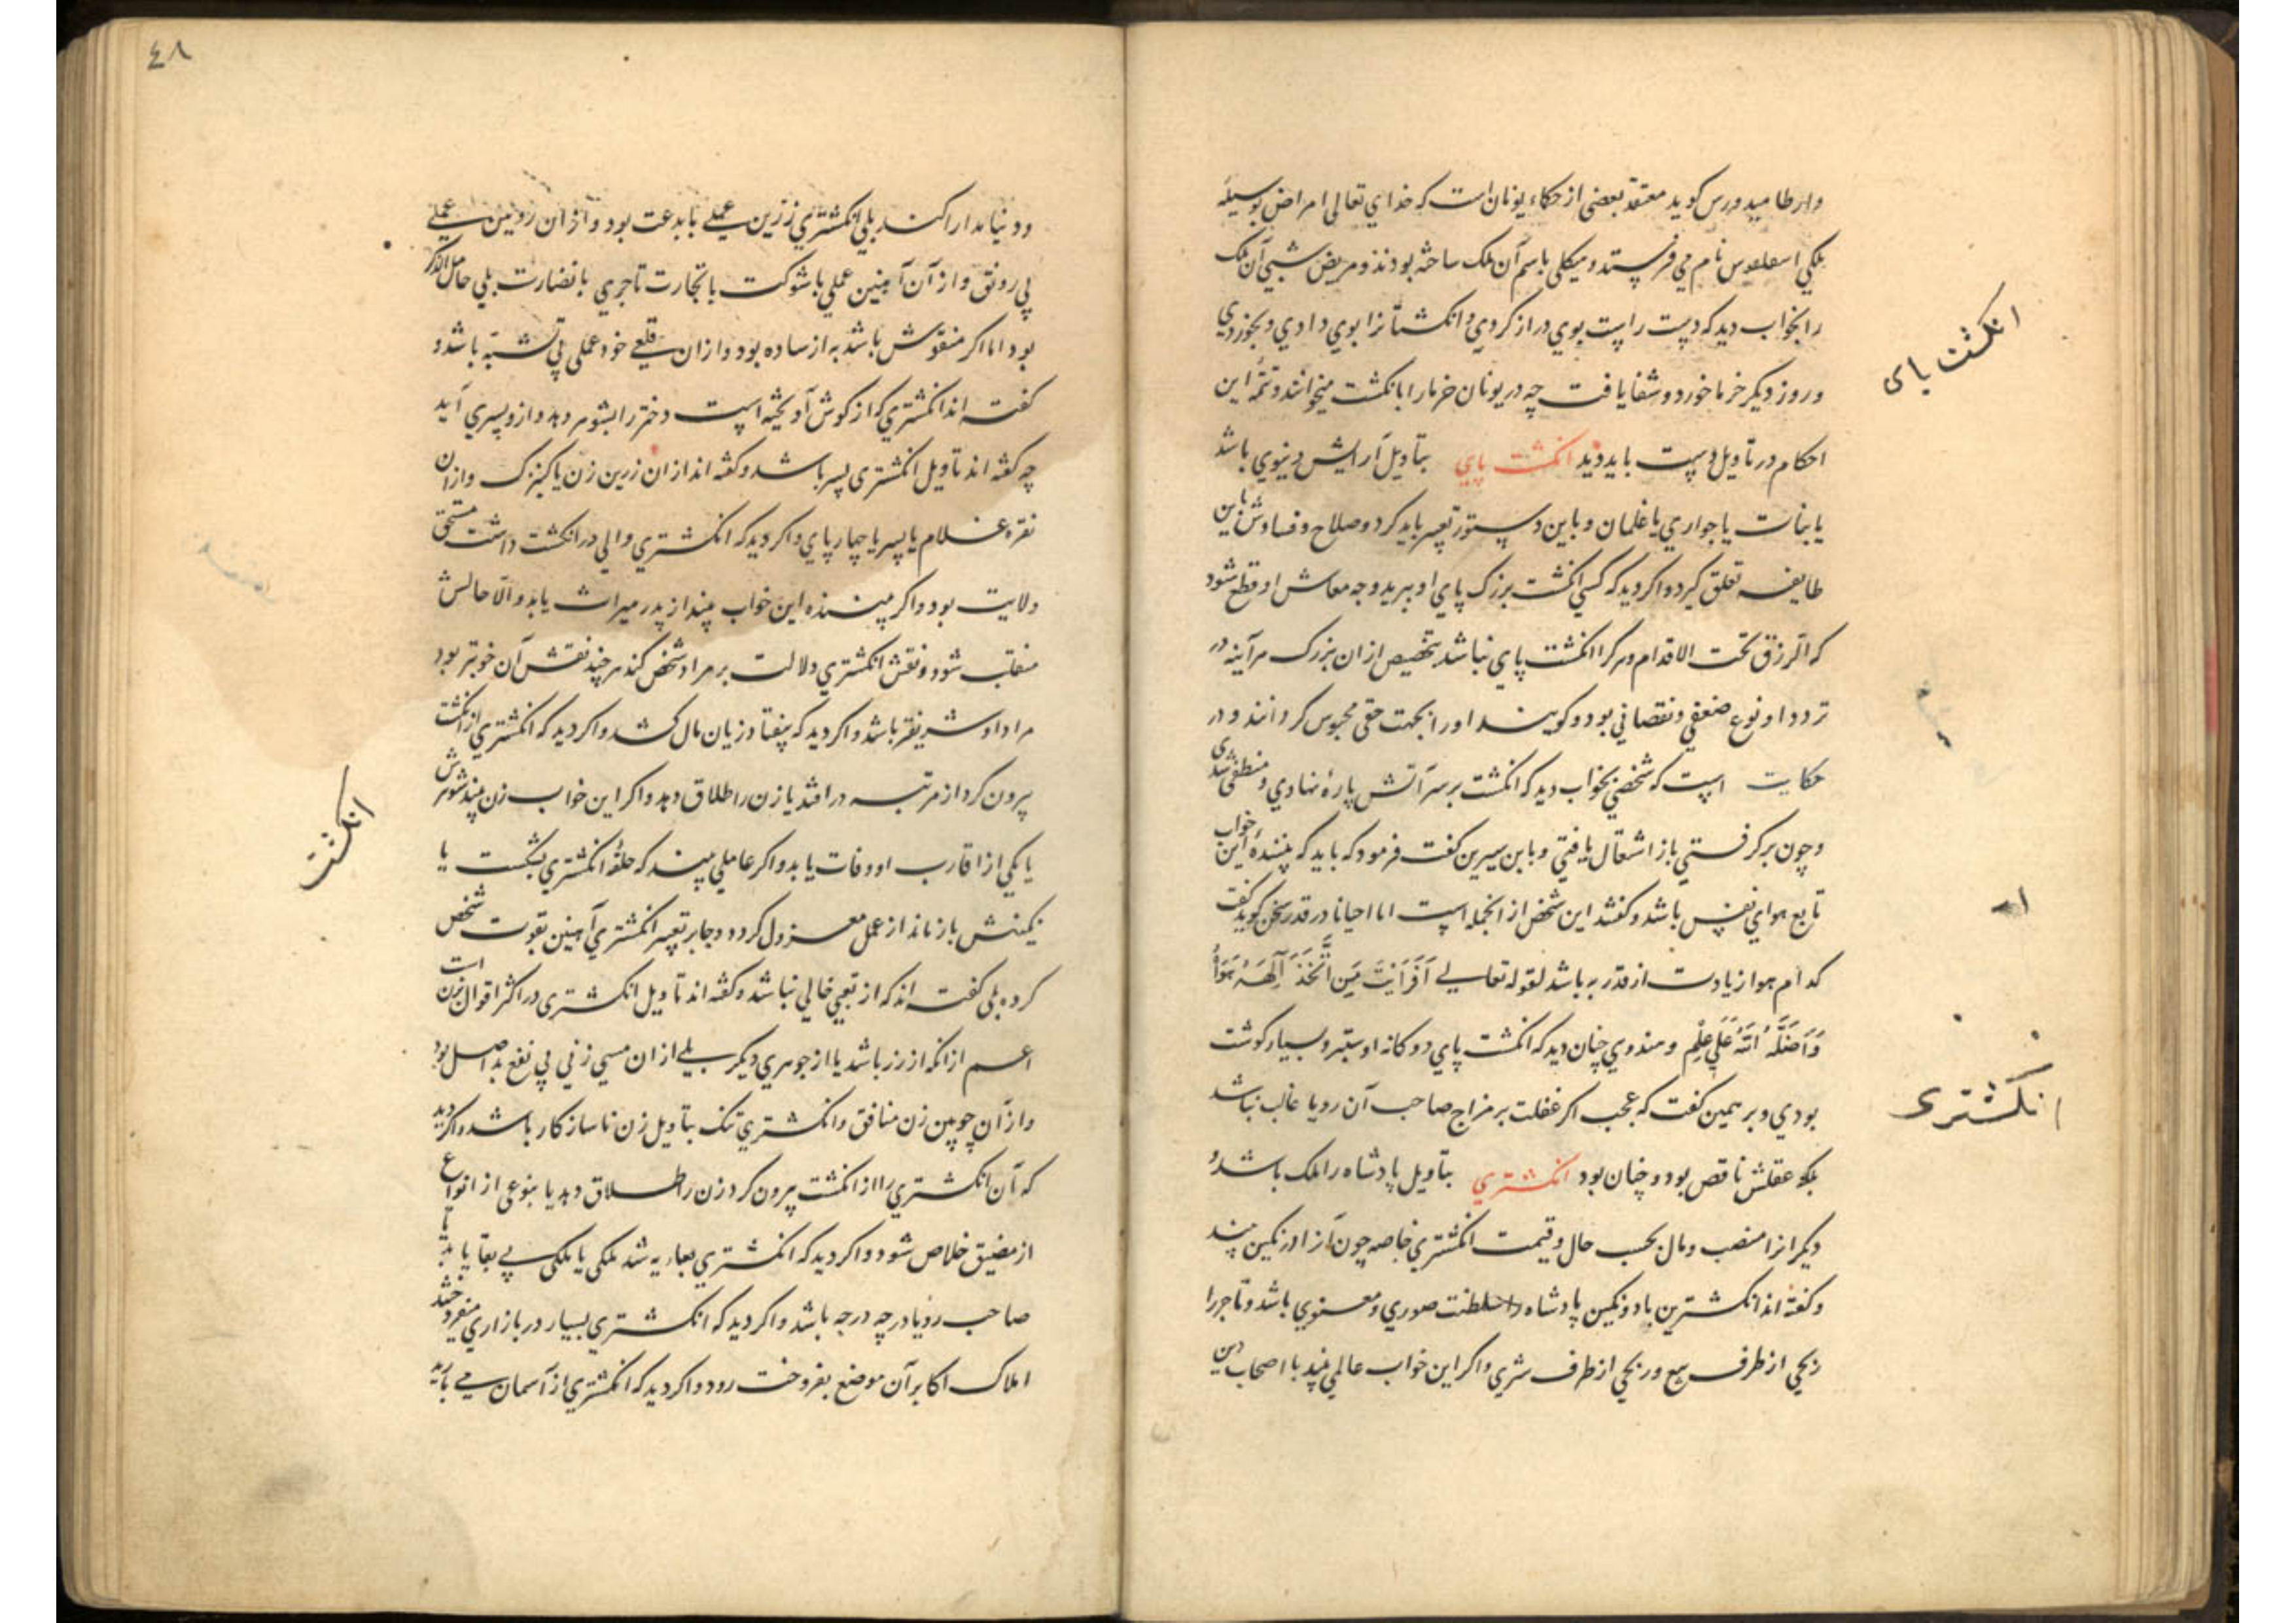 وارطامیدورس کوید معتقد بعضی از حکماء یونان است که خدای تعالی امراض بوسیلهٔ
ملکی اسعلعوس نام می فرستد و هیکلی باسم آن ملک ساخته بودند و مریض شبی آن ملک
را بخواب دید که دست راست بوی دراز کردی و انکشتانرا بوی دادی و بخوردی
و روز دیکر خرما خورد و شفا یافت چه در یونان خرما را بانکشت میخوانند و تتمهٔ این
احکام در تاویل دست باید دید انکشت پای بتاویل آرایش دنیوی باشد
یا بنات یا جواری یا غلمان و باین دستور تعبیر باید کرد و صلاح و فسادش باین
طایفه تعلق کیرد و اکر دید که کسی انکشت بزرک پای او ببرید وجه معاش او قطع شود
که الرزق تحت الاقدام و هر کرا انکشت پای نباشد بتخصیص از ان بزرک هر آینه در
تردد او نوع ضعفی و نقصانی بود و کویند او را بجهت حقی محبوس کردانند و در
حکایت است که شخصی بخواب دید که انکشت بر سر آتش پارهٔ نهادی و منطفی شدی
و چون بر کرفتی باز اشتعال یافتی و با ابن سیرین کفت فرمود که باید که بینندهٔ این خواب
تابع هوای نفس باشد و کفتند این شخص از انجمله است اما احیانا در قدر سخن کوید کفت
کدام هوا زیادت از قدر به باشد لقوله تعالی أَفَرَأَیْتَ مَنِ اتَّخَذَ إِلَهَهُ هَوَاهُ
وَأَضَلَّهُ اللَّهُ عَلَی عِلْمٍ و هندوی چنان دید که انکشت پای دوکانه او ستبر و بسیار کوشت
بودی و برهمن کفت که عجب اکر غفلت بر مزاج صاحب آن رویا غالب نباشد
بلکه عقلش ناقص بود و چنان بود انکشتری بتاویل پادشاه را ملک باشد و
دیکرانرا منصب و مال بحسب حال و قیمت انکشتری خاصه چون آنرا در نکین بیند
و کفته اند انکشترین با دو نکین پادشاه را سلطنت صوری و معنوی باشد و تاجر را
ربحی از طرف بیع و ربحی از طرف شری و اکر این خواب عالمی بیند با اصحاب دین
انکشت پای
انکشتری
٤٨
و دنیا مدارا کند بلی انکشتری زرین عملی با بدعت بود و از ان رویین عملی
بی رونق و از آن آهنین عملی با شوکت یا تجارت تاجری با نضارت بلی خامل الذکر
بود اما اکر منقوش باشد به از ساده بود و از ان قلعی خود عملی بی تشبه باشد و
کفته اند انکشتری که از کوش آویخته است دختر را بشوهر دهد و از و پسری آید
چه کفته اند تاویل انکشتری پسر باشد و کفته اند از ان زرین زن یا کنیزک و از ان
نقره غلام یا پسر یا چهارپای و اکر دید که انکشتری والی در انکشت داشت مستحق
ولایت بود و اکر بیننده این خواب بیند از پدر میراث یابد و الا حالش
منقلب شود و نقش انکشتری دلالت بر مراد شخص کند هر چند نقش آن خوبتر بود
مراد او شریفتر باشد و اکر دید که بیفتاد زیان مال کشد و اکر دید که انکشتری از انکشت
بیرون کرد از مرتبه در افتد یا زن را طلاق دهد و اکر این خواب زن بیند شوهرش
یا یکی از اقارب او وفات یابد و اکر عاملی بیند که حلقهٔ انکشتری بشکست یا
نکینش باز ماند از عمل معزول کردد و جابر تعبیر انکشتری آهنین بقوت شخص
کرده بلی کفته اند که از تعبی خالی نباشد و کفته اند تاویل انکشتری در اکثر اقوال زن است
اعم از انکه از زر باشد یا از جوهری دیکر بلی از ان مسی زنی بی نفع بد اصل بود
و از آن چوبین زن منافق و انکشتری تنک بتاویل زن ناسازکار باشد و اکر دید
که آن انکشتری را از انکشت بیرون کرد زن را طلاق دهد یا بنوعی از انواع
از مضیق خلاص شود و اکر دید که انکشتری بعاریه شد ملکی یا ملکی بی بقا یابد تا
صاحب رویا در چه درجه باشد و اکر دید که انکشتری بسیار در بازاری میفروختند
املاک اکابر آن موضع بفروخت رود و اکر دید که انکشتری از آسمان می بارید